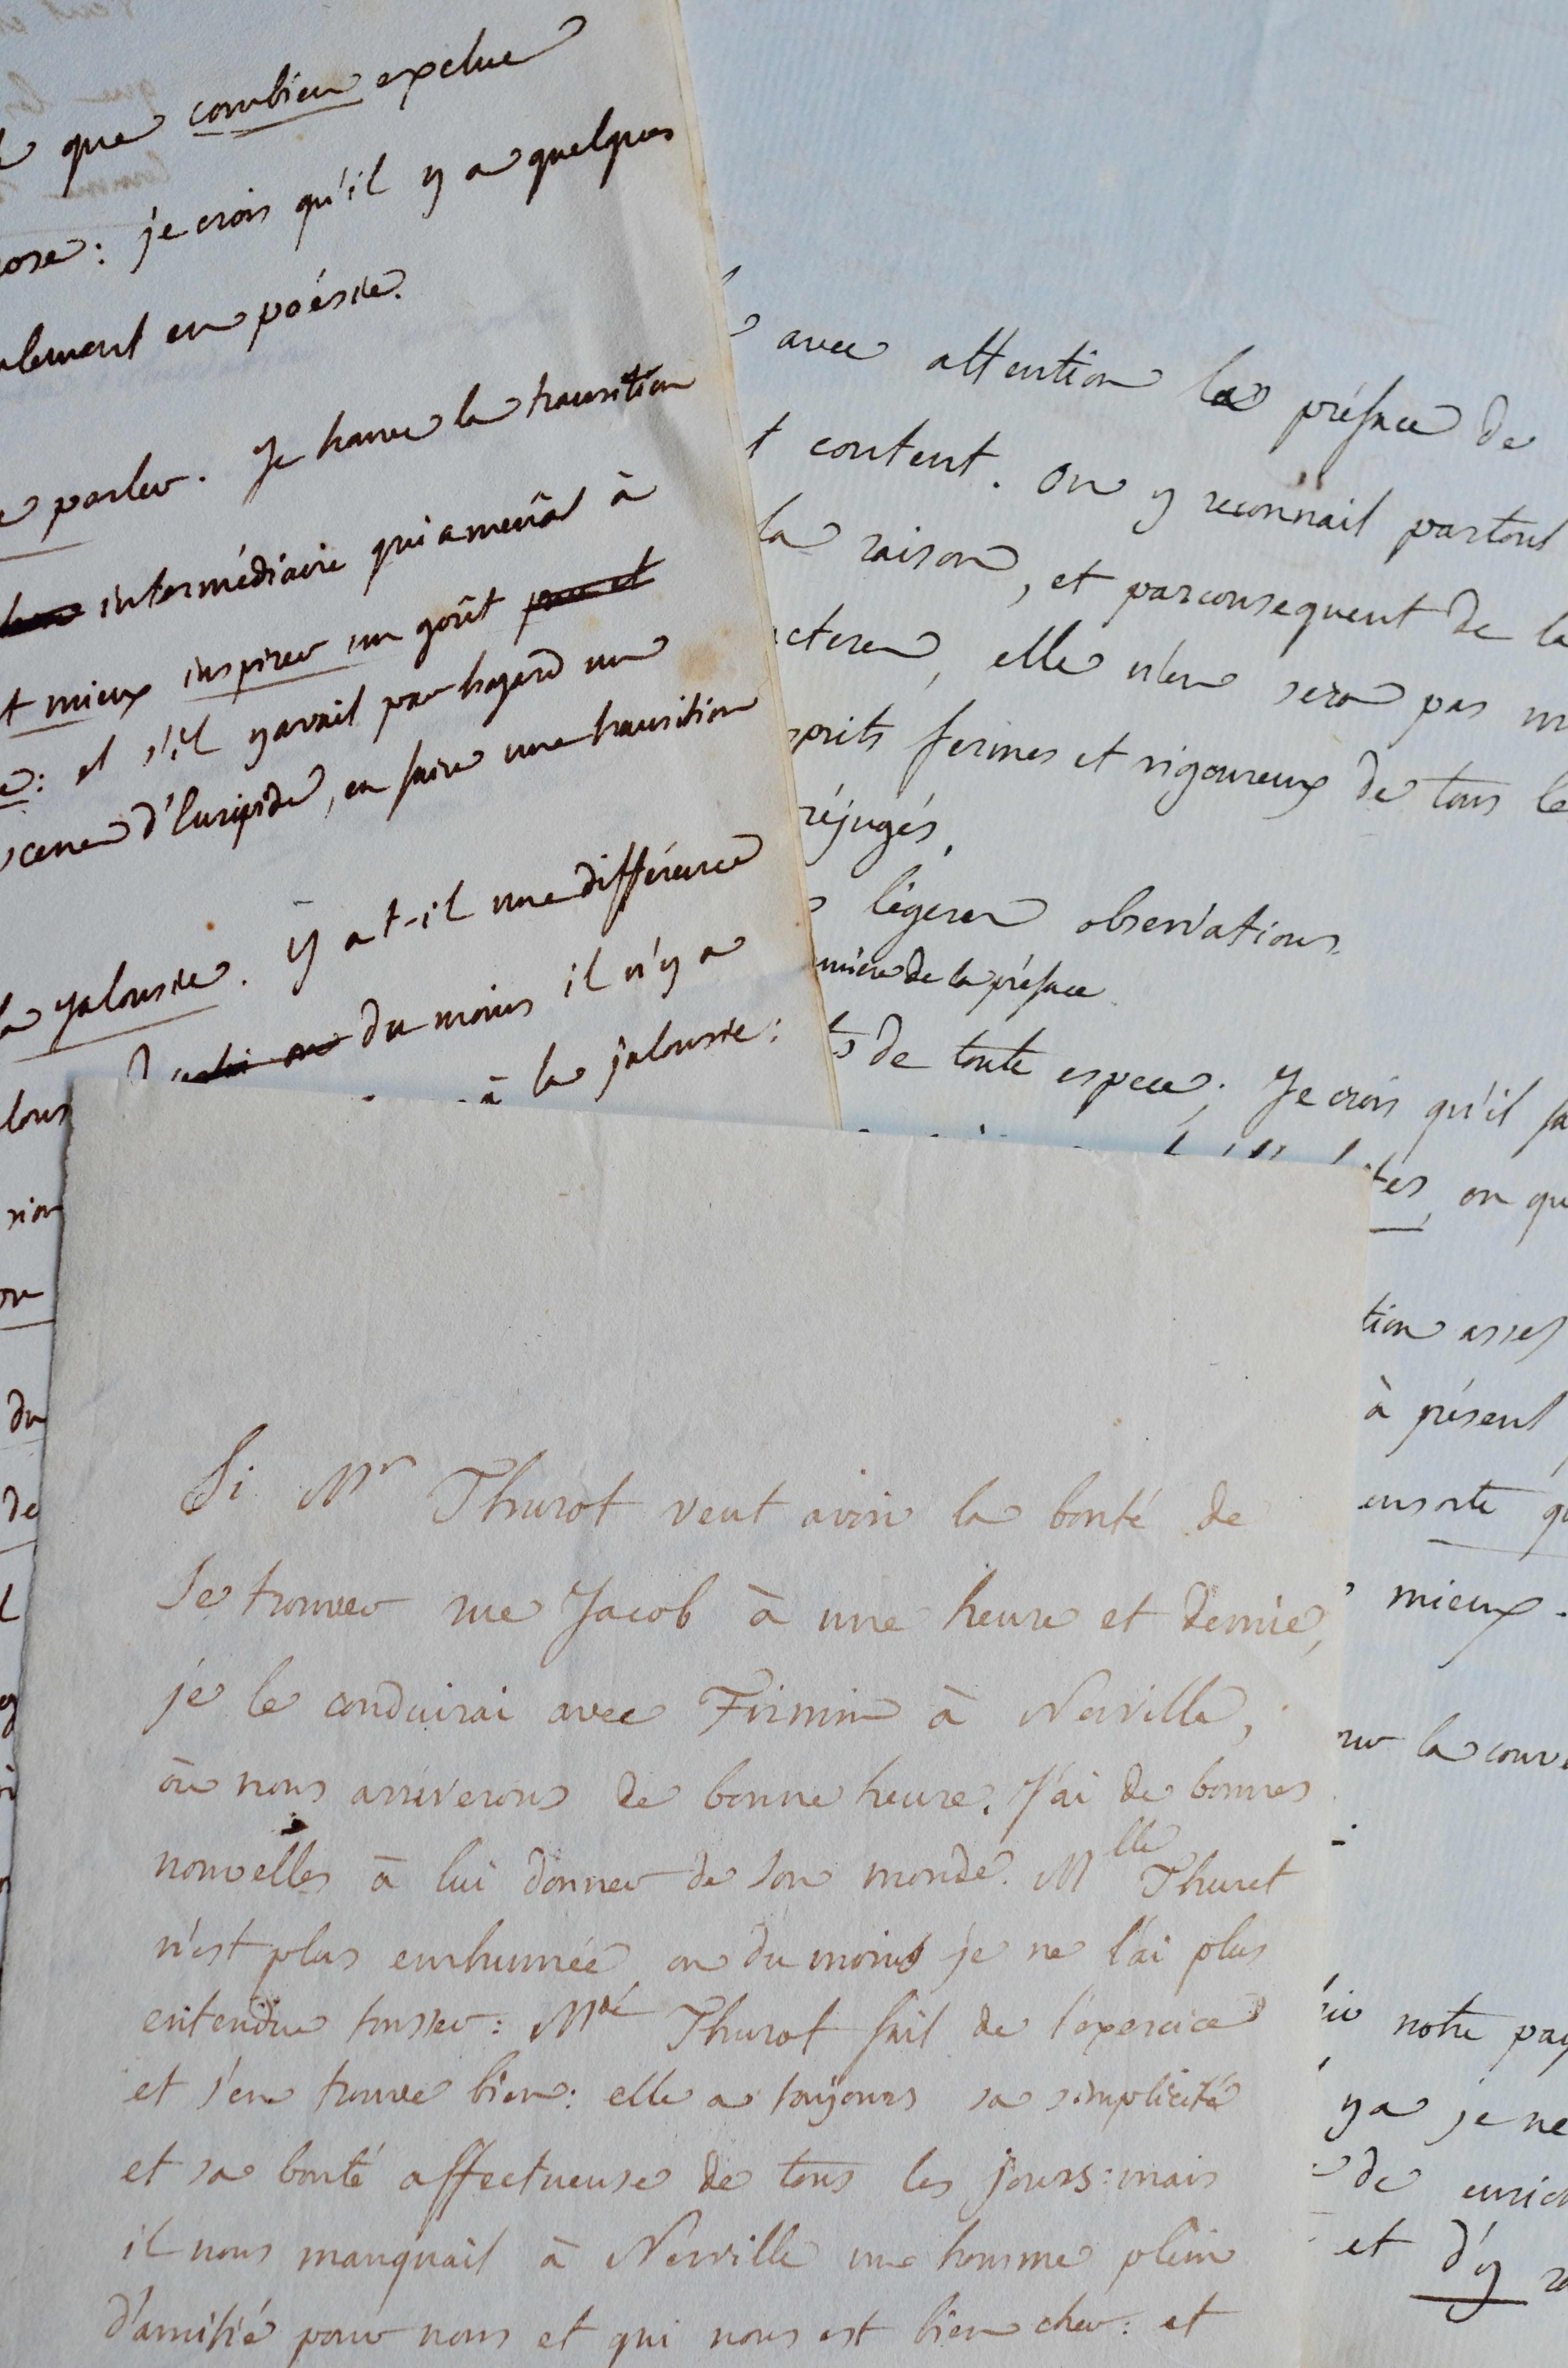 que combien exclue
ose: je crois qu'il y a quelques
lement en poésie.
parler. Je trouve la transition
intermédiaire qui amenât à
mieux inspirer un goût
: et s'il y avait par hazard un
scene d'Euripide, en faire une transition
la jalousie. Y a t-il une différence
du moins il n'y a
à la jalousie:
du
de
avec attention la préface de
t content. On y reconnait partout
la raison, et parconsequent de la
cteren, elle n'en sera pas m
sprits fermes et vigoureux de tous le
réjugés.
légeres observations.
de la préface
de toute espece; Je crois qu'il fa
tes, on qu
tion assez
à présent
ensorte qu
mieux.
la couv
notre pay
ya je ne
de enrich
et d'y
Si Mr Thurot veut avoir la bonté de
se trouver rue Jacob à une heure et demie,
je le conduirai avec Firmin à Nerville,
où nous arriverons de bonne heure. J'ai de bonnes
nouvelles à lui donner de son monde. Mlle Thurot
n'est plus enrhumée, ou du moins je ne l'ai plus
entendue tousser: Mde Thurot fait de l'exercice
et s'en trouve bien: elle a toujours sa simplicité
et sa bonté affectueuse de tous les jours: mais
il nous manquait à Nerville un homme plein
d'amitié pour nous et qui nous est bien cher: et